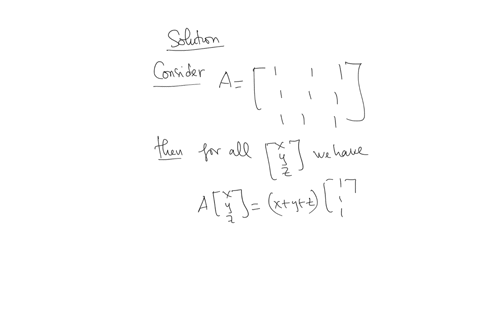 Solution
Consider A = [ 1 1 1
1 1 1
1 1 1 ]
then for all [ x y z ] we have
A [ x y z ] = (x+y+z) [ 1 1 1 ]